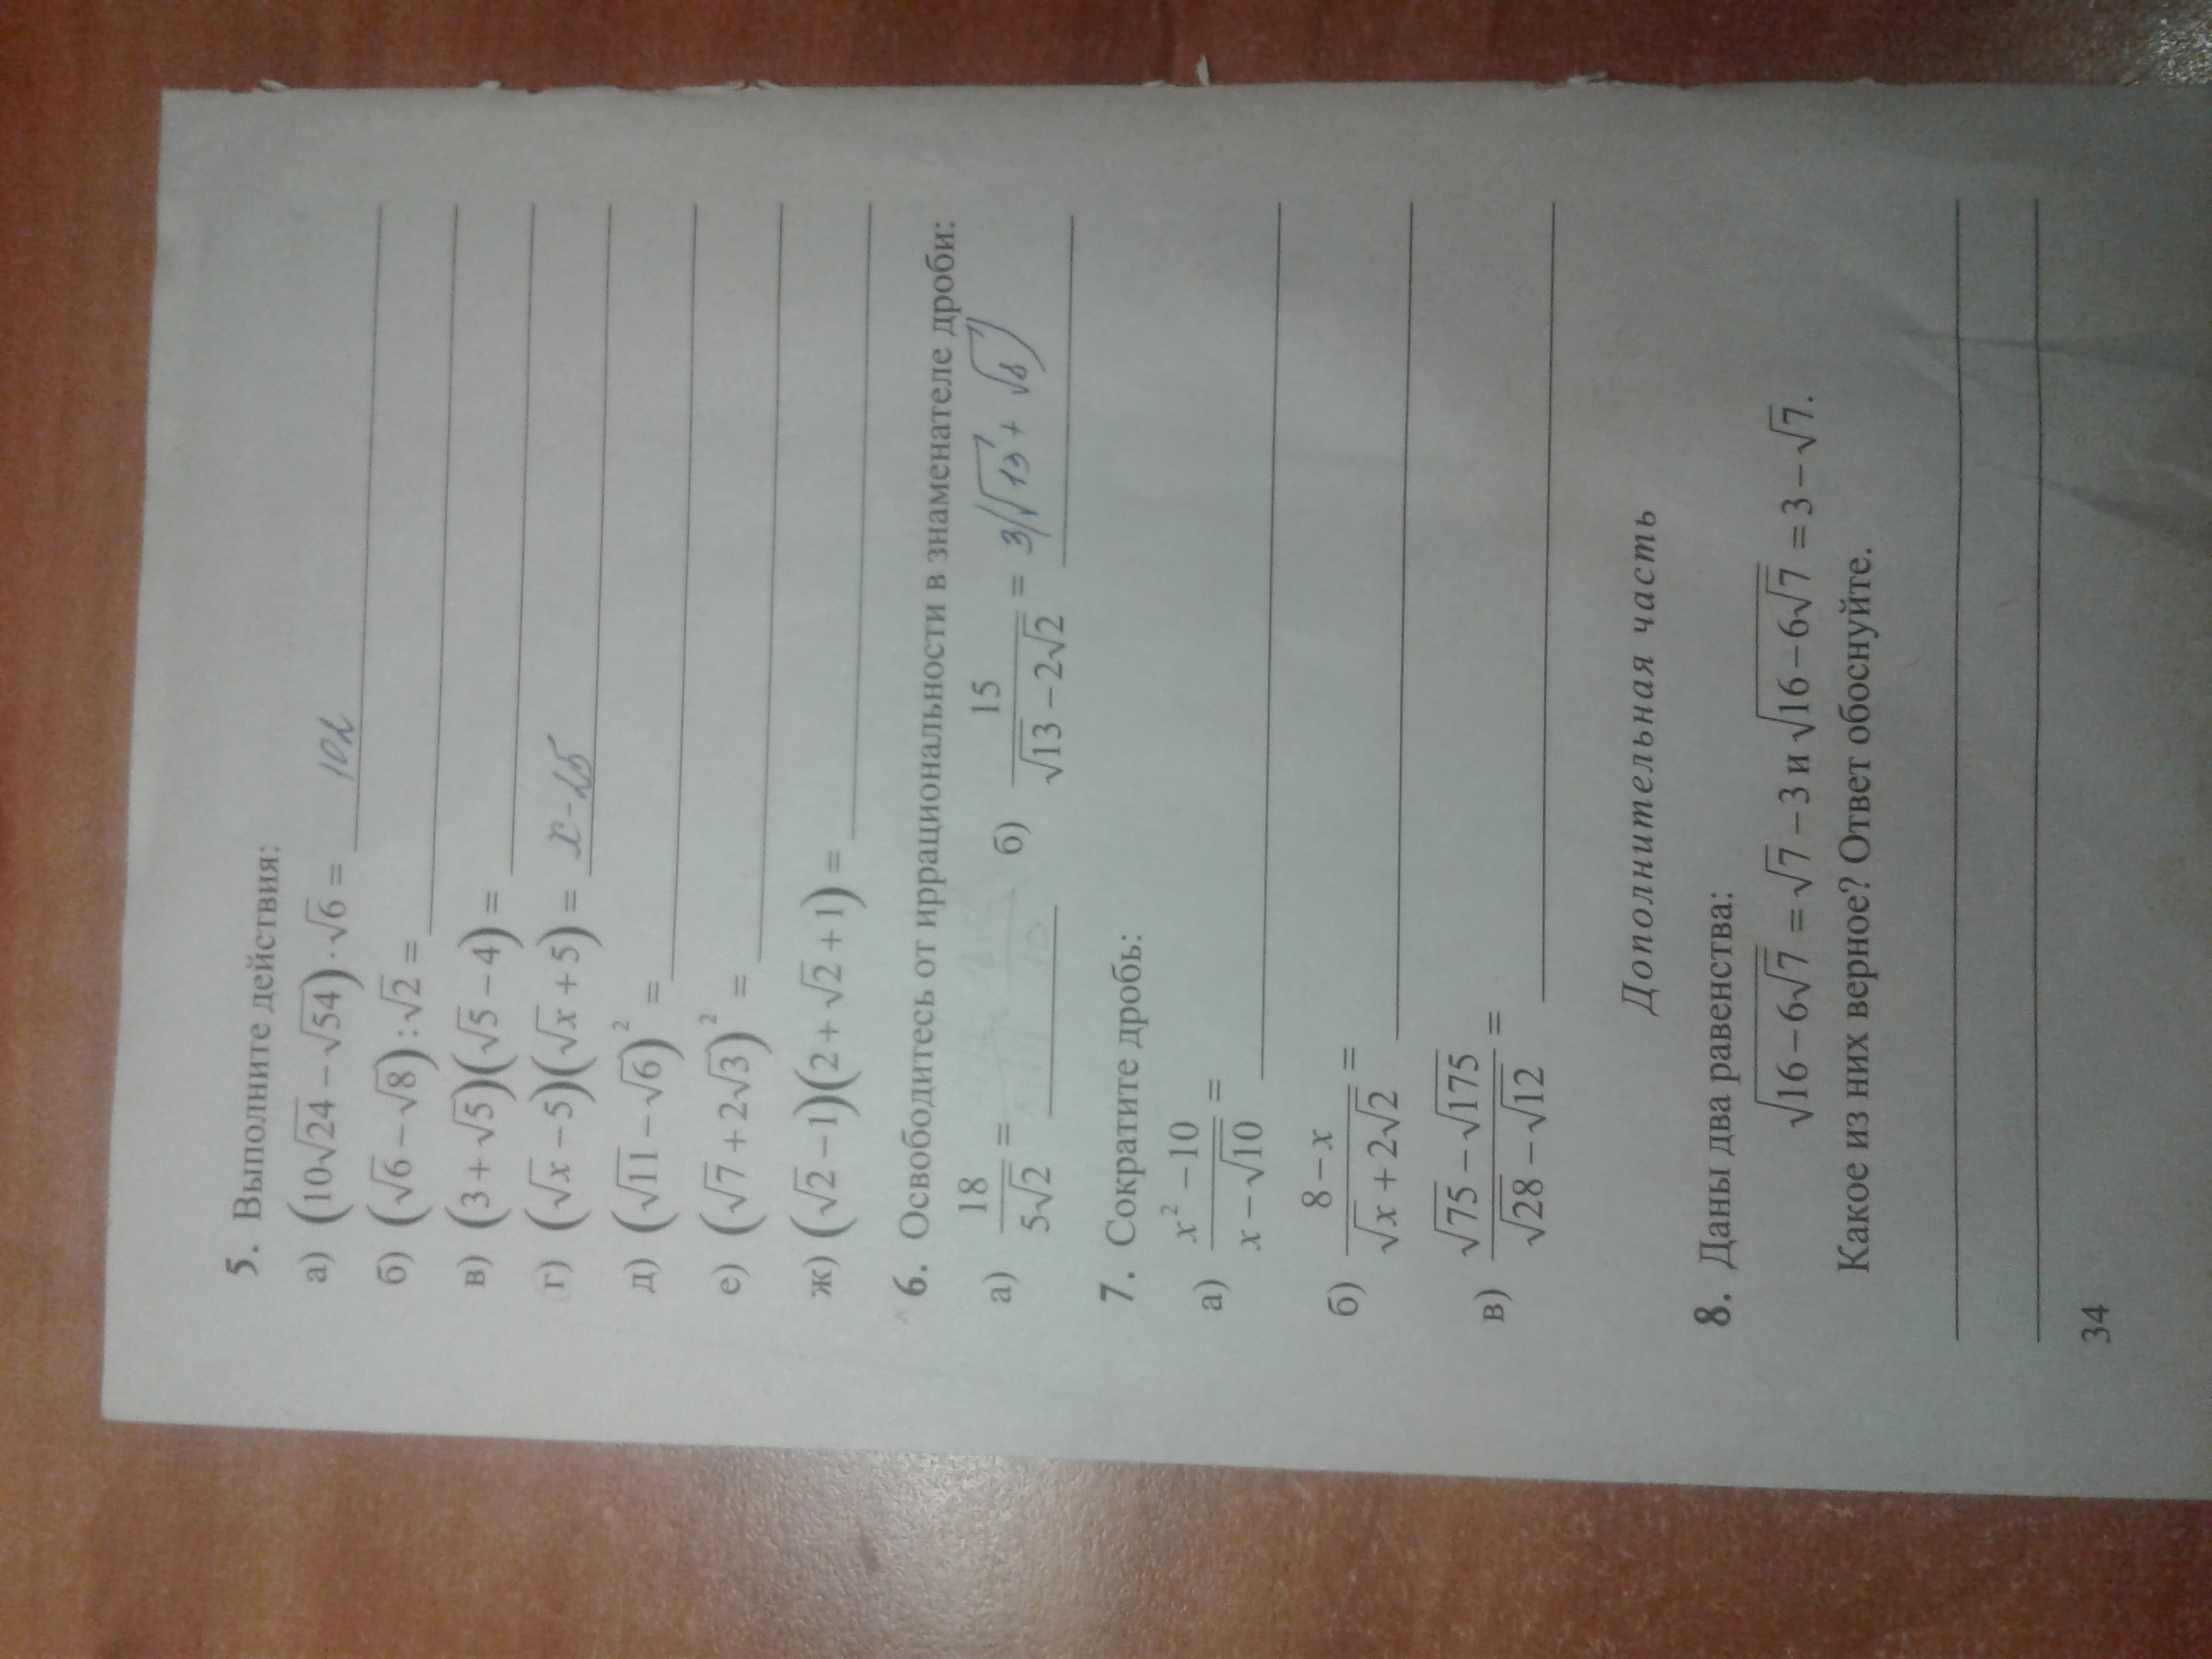 5. Выполните действия:
а) (10√24 − √54) · √6 = 102
б) (√6 − √8) : √2 =
в) (3 + √5)(√5 − 4) =
г) (√x − 5)(√x + 5) = x − 25
д) (√11 − √6)² =
е) (√7 + 2√3)² =
ж) (√2 − 1)(2 + √2 + 1) =
6. Освободитесь от иррациональности в знаменателе дроби:
а) 18/(5√2) = б) 15/(√13 − 2√2) = 3(√13 + √8)
7. Сократите дробь:
а) (x² − 10)/(x − √10) =
б) (8 − x)/(√x + 2√2) =
в) (√75 − √175)/(√28 − √12) =
Дополнительная часть
8. Даны два равенства:
√(16 − 6√7) = √7 − 3 и √(16 − 6√7) = 3 − √7.
Какое из них верное? Ответ обоснуйте.
34